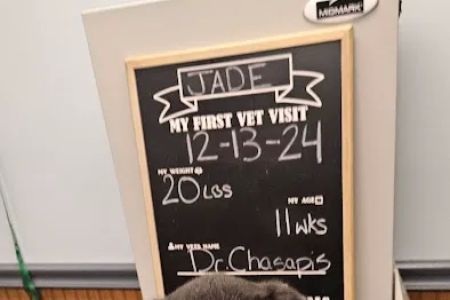 MIDMARK
JADE
MY FIRST VET VISIT
12-13-24
MY WEIGHT
20 LBS
MY AGE
11 wks
MY VET'S NAME
Dr. Chasapis